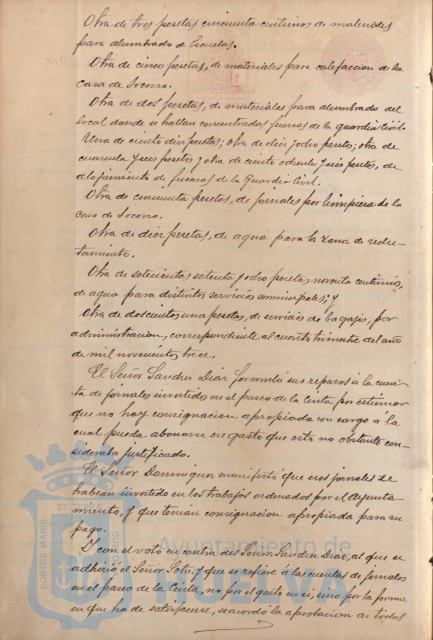 Otra de tres pesetas cincuenta centimos de materiales
para alumbrado de Escuelas.
Otra de cinco pesetas, de materiales para calefaccion de la
Casa de Socorro.
Otra de dos pesetas, de materiales para alumbrado del
local donde se hallan concentradas fuerzas de la guardia Civil.
Una de ciento diez pesetas; otra de diez y ocho pesetas; otra de
cuarenta y seis pesetas y otra de ciento ochenta y seis pesetas, de
alojamiento de fuerzas de la Guardia Civil.
Otra de cincuenta pesetas, de jornales por limpieza de la
casa de Socorro.
Otra de diez pesetas, de agua para la zona de reclu-
tamiento.
Otra de setecientas setenta y ocho pesetas noventa centimos,
de agua para distintos servicios municipales; y
Otra de doscientas una pesetas, de servicios de bagajes, por
administracion, correspondiente al cuarto trimestre del año
de mil novecientos trece.
El Señor Sanchez Diaz formuló sus reparos á la cuen-
ta de jornales invertidos en el paseo de la Cinta por estimar
que no hay consignacion apropiada con cargo á la
cual pueda abonarse un gasto que esto no obstante con-
sideraba justificado.
El Señor Dominguez manifestó que esos jornales se
habian invertido en los trabajos ordenados por el Ayunta-
miento, y que tenian consignacion apropiada para su
pago.
Y con el voto en contra del Señor Sanchez Diaz, al que se
adhirió el Señor Soto, y que se refiere á las cuentas de jornales
en el paseo de la Cinta, no por el gasto en sí, sino por la forma
en que ha de satisfacerse, se acordó la aprobacion de todas
PORTUS MARIS
Ayuntamiento de
HUELVA